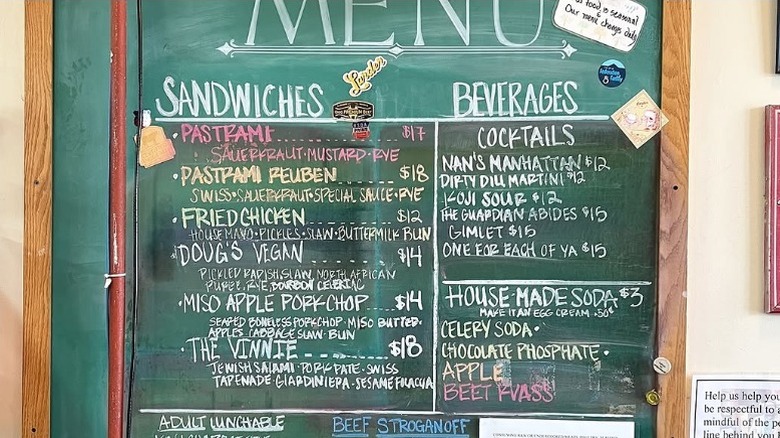 MENU
food is seasonal
& Our menu changes daily
Lander
SANDWICHES
PASTRAMI $17
SAUERKRAUT·MUSTARD·RYE
PASTRAMI REUBEN $18
SWISS·SAUERKRAUT·SPECIAL SAUCE·RYE
FRIED CHICKEN $12
HOUSE MAYO·PICKLES·SLAW·BUTTERMILK BUN
DOUG'S VEGAN $14
PICKLED RADISH, SLAW, NORTH AFRICAN
PUREE, RYE, BOURBON CELERIAC
·MISO APPLE PORK CHOP $14
SEARED BONELESS PORKCHOP·MISO BUTTER·
APPLES CABBAGE SLAW·BUN
·THE VINNIE $18
JEWISH SALAMI·PORK PATE·SWISS
TAPENADE GIARDINIERA·SESAME FOCACCIA
BEVERAGES
COCKTAILS
NAN'S MANHATTAN $12
DIRTY DILL MARTINI $12
KOJI SOUR $12
THE GUARDIAN ABIDES $15
GIMLET $15
ONE FOR EACH OF YA $15
HOUSE-MADE SODA $3
MAKE IT AN EGG CREAM .50¢
CELERY SODA·
CHOCOLATE PHOSPHATE·
APPLE
BEET KVASS
ADULT LUNCHABLE
BEEF STROGANOFF
Help us help you
be respectful to
mindful of the
line behind you